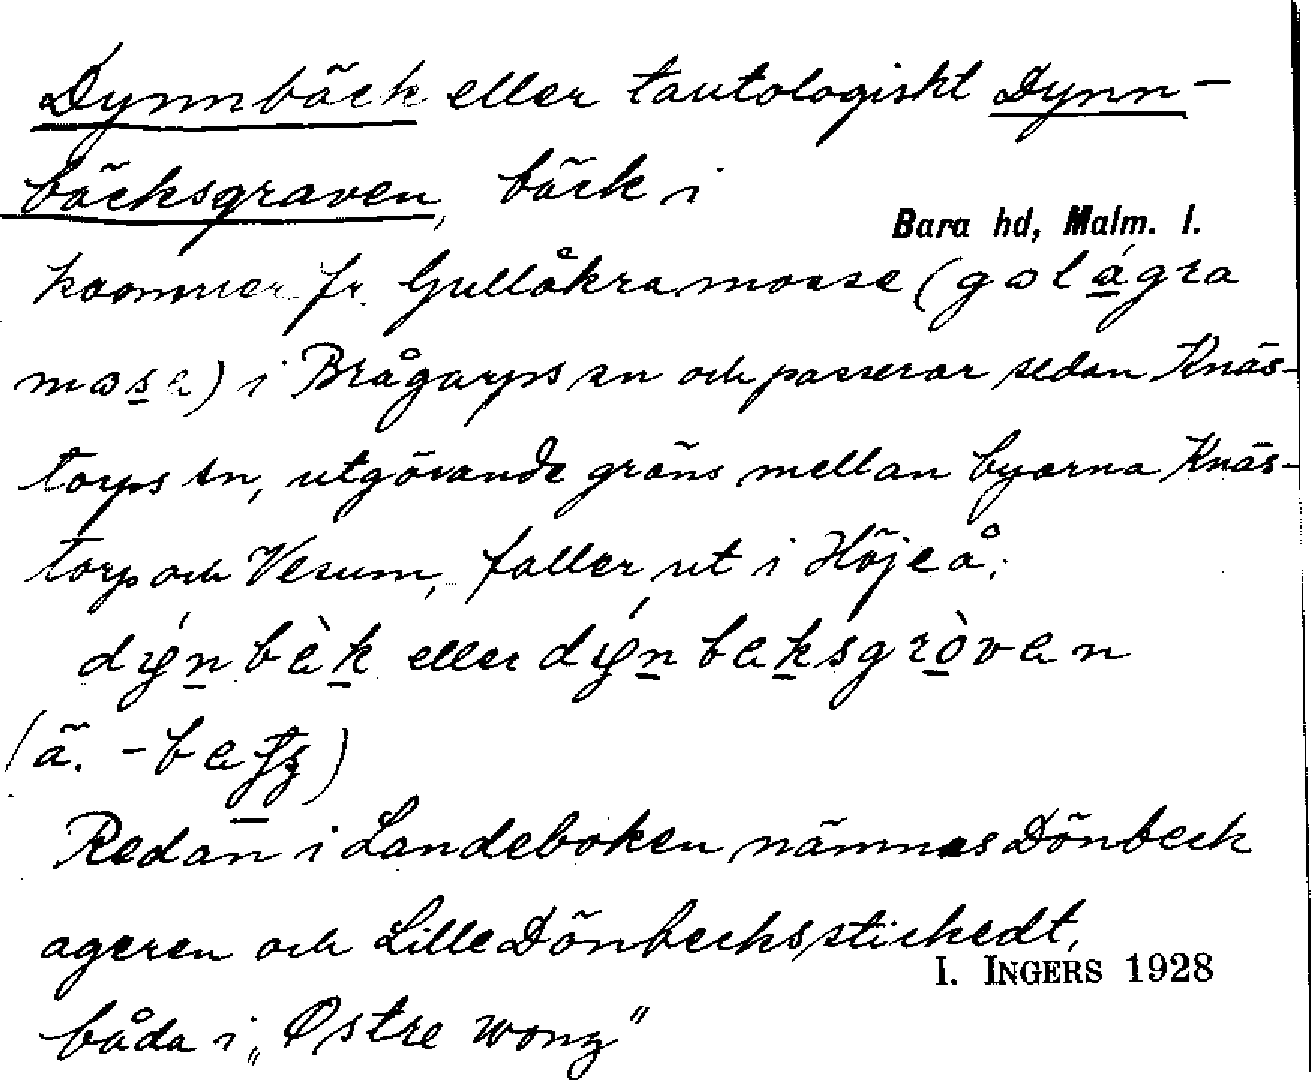 Dynnbäck eller tautologiskt Dynn-
bäcksgraven, bäck i
Bara hd, Malm. l.
kommer fr. Gullåkra mosse (golágra
mosa) i Brågarps sn och passerar sedan Knäs-
torps sn, utgörande gräns mellan byarna Knäs-
torp och Vesum, faller ut i Höje å.
dýnbèk eller dýnbeksgròven
(ä. -be)
Redan i Landeboken nämnes Dönbeck
ageren och Lille Dönbecksstickedt,
I. INGERS 1928
båda i „Østre wong"